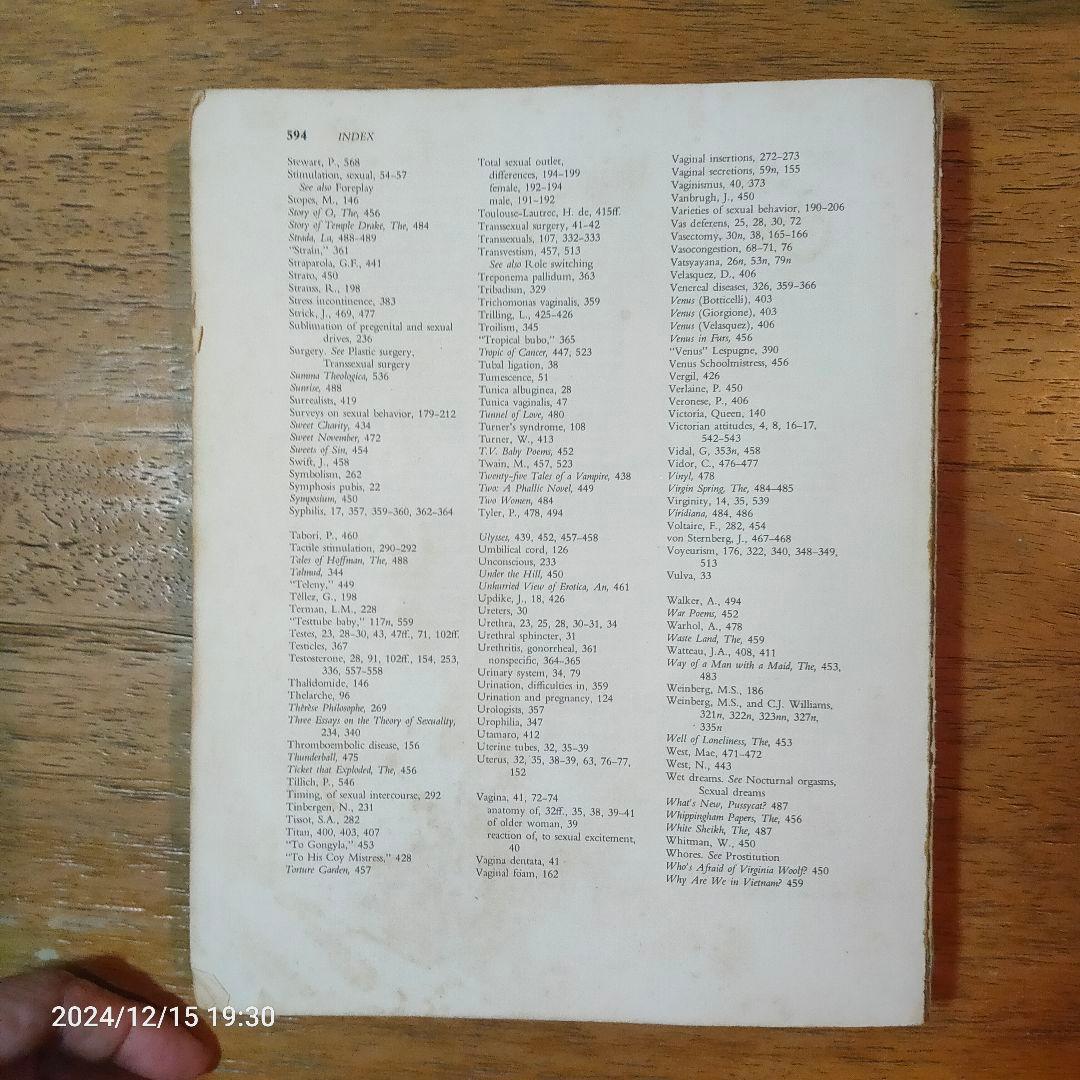 594 INDEX
Stewart, P., 568
Stimulation, sexual, 54–57
See also Foreplay
Stopes, M., 146
Story of O, The, 456
Story of Temple Drake, The, 484
Strada, La, 488–489
"Strain," 361
Straparola, G.F., 441
Strato, 450
Strauss, R., 198
Stress incontinence, 383
Strick, J., 469, 477
Sublimation of pregenital and sexual
drives, 236
Surgery. See Plastic surgery,
Transsexual surgery
Summa Theologica, 536
Sunrise, 488
Surrealists, 419
Surveys on sexual behavior, 179–212
Sweet Charity, 434
Sweet November, 472
Sweets of Sin, 454
Swift, J., 458
Symbolism, 262
Symphosis pubis, 22
Symposium, 450
Syphilis, 17, 357, 359–360, 362–364
Tabori, P., 460
Tactile stimulation, 290–292
Tales of Hoffman, The, 488
Talmud, 344
"Teleny," 449
Téllez, G., 198
Terman, L.M., 228
"Testtube baby," 117n, 559
Testes, 23, 28–30, 43, 47ff., 71, 102ff.
Testicles, 367
Testosterone, 28, 91, 102ff., 154, 253,
336, 557–558
Thalidomide, 146
Thelarche, 96
Thérèse Philosophe, 269
Three Essays on the Theory of Sexuality,
234, 340
Thromboembolic disease, 156
Thunderball, 475
Ticket that Exploded, The, 456
Tillich, P., 546
Timing, of sexual intercourse, 292
Tinbergen, N., 231
Tissot, S.A., 282
Titan, 400, 403, 407
"To Gongyla," 453
"To His Coy Mistress," 428
Torture Garden, 457
Total sexual outlet,
differences, 194–199
female, 192–194
male, 191–192
Toulouse-Lautrec, H. de, 415ff.
Transsexual surgery, 41–42
Transsexuals, 107, 332–333
Transvestism, 457, 513
See also Role switching
Treponema pallidum, 363
Tribadism, 329
Trichomonas vaginalis, 359
Trilling, L., 425–426
Troilism, 345
"Tropical bubo," 365
Tropic of Cancer, 447, 523
Tubal ligation, 38
Tumescence, 51
Tunica albuginea, 28
Tunica vaginalis, 47
Tunnel of Love, 480
Turner's syndrome, 108
Turner, W., 413
T.V. Baby Poems, 452
Twain, M., 457, 523
Twenty-five Tales of a Vampire, 438
Two: A Phallic Novel, 449
Two Women, 484
Tyler, P., 478, 494
Ulysses, 439, 452, 457–458
Umbilical cord, 126
Unconscious, 233
Under the Hill, 450
Unhurried View of Erotica, An, 461
Updike, J., 18, 426
Ureters, 30
Urethra, 23, 25, 28, 30–31, 34
Urethral sphincter, 31
Urethritis, gonorrheal, 361
nonspecific, 364–365
Urinary system, 34, 79
Urination, difficulties in, 359
Urination and pregnancy, 124
Urologists, 357
Urophilia, 347
Utamaro, 412
Uterine tubes, 32, 35–39
Uterus, 32, 35, 38–39, 63, 76–77,
152
Vagina, 41, 72–74
anatomy of, 32ff., 35, 38, 39–41
of older woman, 39
reaction of, to sexual excitement,
40
Vagina dentata, 41
Vaginal foam, 162
Vaginal insertions, 272–273
Vaginal secretions, 59n, 155
Vaginismus, 40, 373
Vanbrugh, J., 450
Varieties of sexual behavior, 190–206
Vas deferens, 25, 28, 30, 72
Vasectomy, 30n, 38, 165–166
Vasocongestion, 68–71, 76
Vatsyayana, 26n, 53n, 79n
Velasquez, D., 406
Venereal diseases, 326, 359–366
Venus (Botticelli), 403
Venus (Giorgione), 403
Venus (Velasquez), 406
Venus in Furs, 456
"Venus" Lespugne, 390
Venus Schoolmistress, 456
Vergil, 426
Verlaine, P. 450
Veronese, P., 406
Victoria, Queen, 140
Victorian attitudes, 4, 8, 16–17,
542–543
Vidal, G, 353n, 458
Vidor, C., 476–477
Vinyl, 478
Virgin Spring, The, 484–485
Virginity, 14, 35, 539
Viridiana, 484, 486
Voltaire, F., 282, 454
von Sternberg, J., 467–468
Voyeurism, 176, 322, 340, 348–349,
513
Vulva, 33
Walker, A., 494
War Poems, 452
Warhol, A., 478
Waste Land, The, 459
Watteau, J.A., 408, 411
Way of a Man with a Maid, The, 453,
483
Weinberg, M.S., 186
Weinberg, M.S., and C.J. Williams,
321n, 322n, 323nn, 327n,
335n
Well of Loneliness, The, 453
West, Mae, 471–472
West, N., 443
Wet dreams. See Nocturnal orgasms,
Sexual dreams
What's New, Pussycat? 487
Whippingham Papers, The, 456
White Sheikh, The, 487
Whitman, W., 450
Whores. See Prostitution
Who's Afraid of Virginia Woolf? 450
Why Are We in Vietnam? 459
2024/12/15 19:30